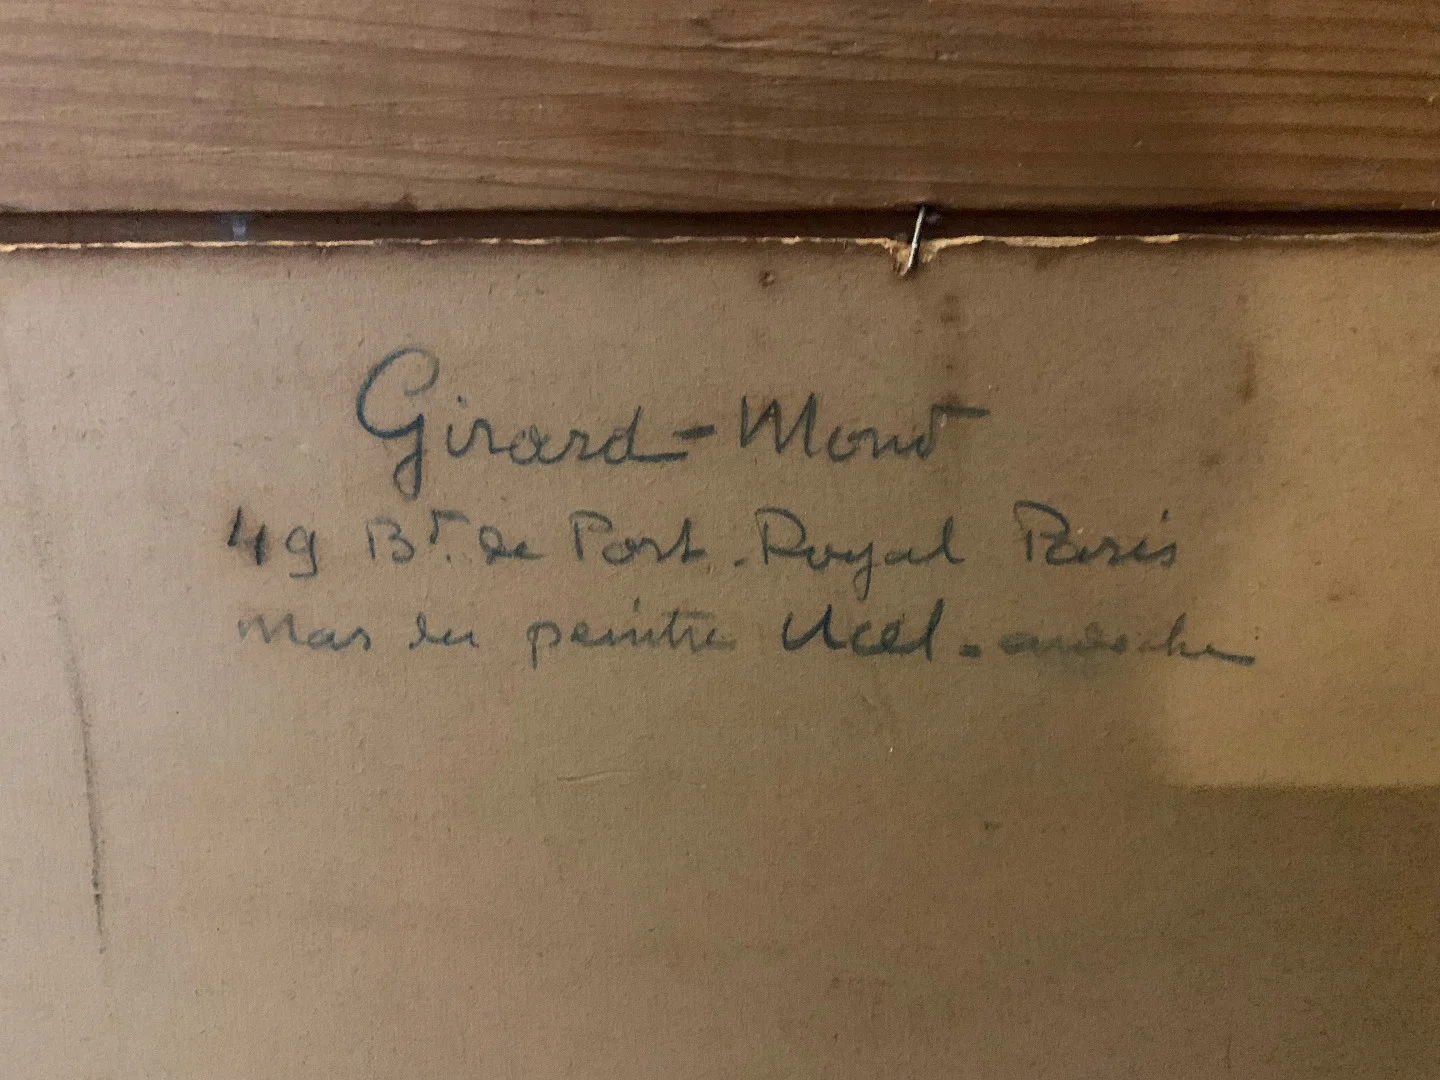 Girard-Mond
49 Bd. de Port-Royal Paris
Mas du peintre Ucel. ardèche